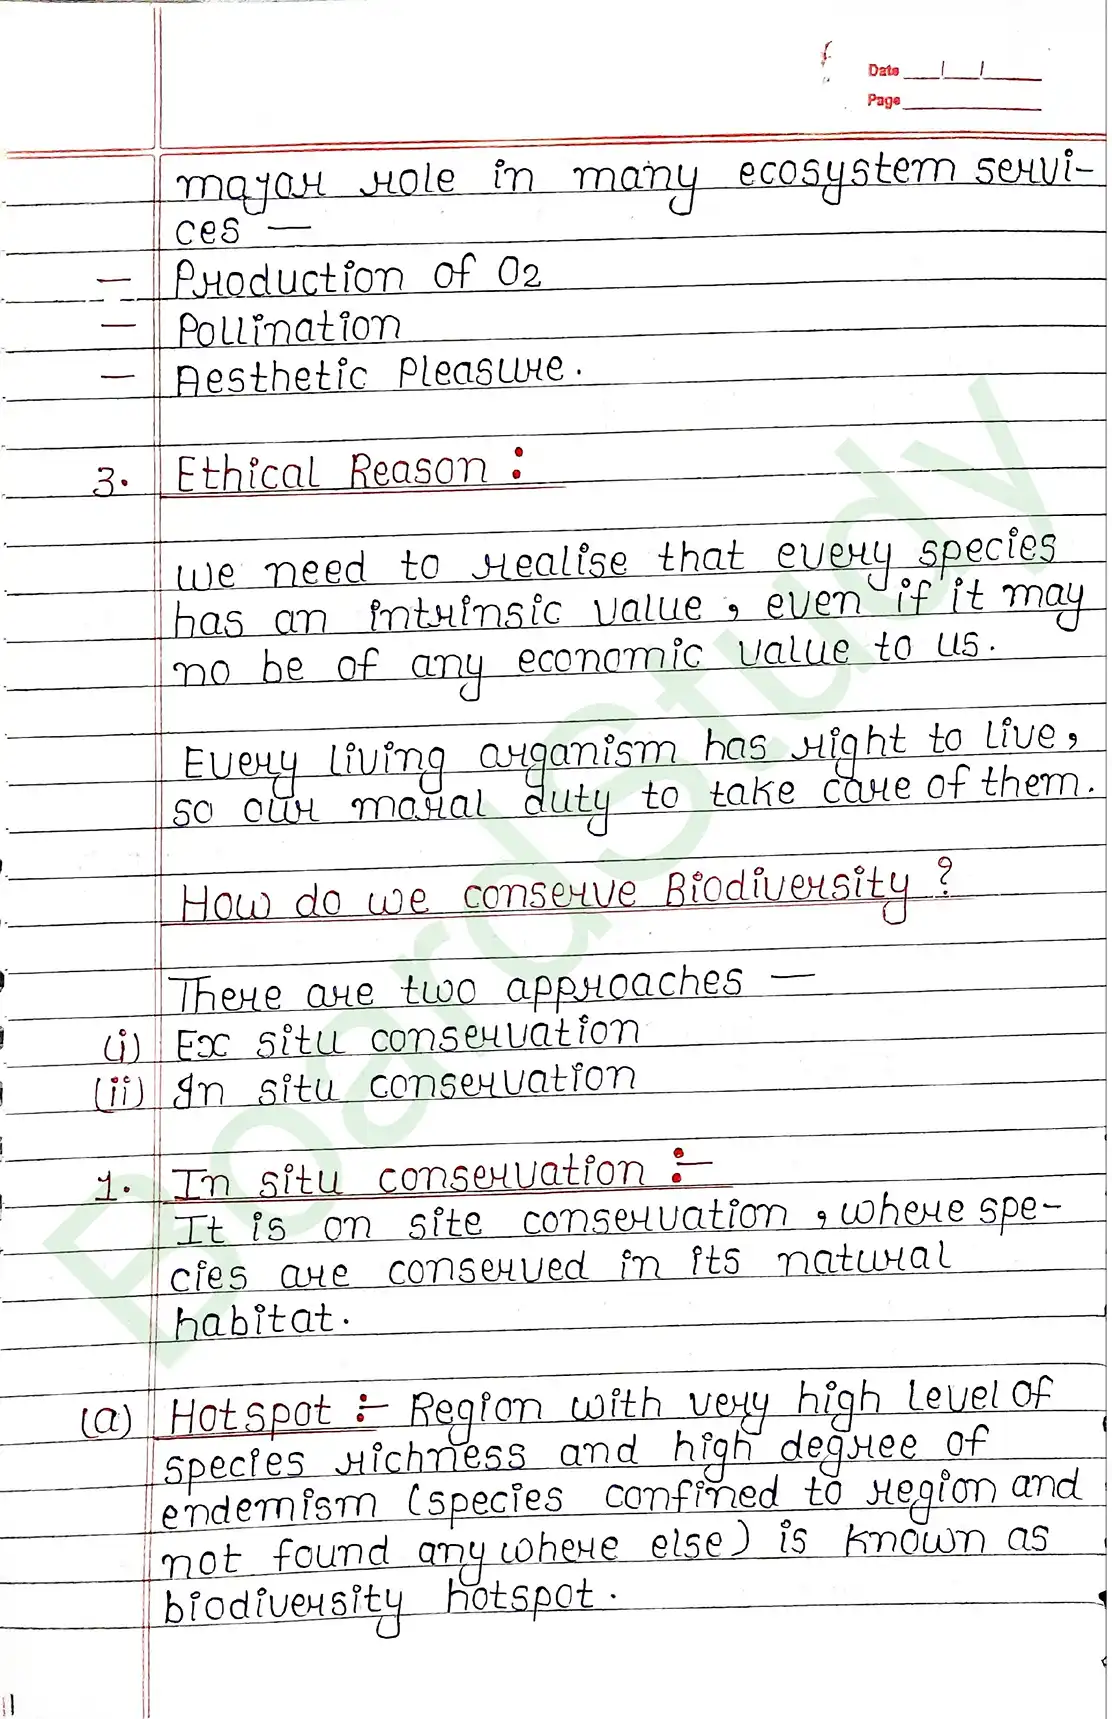 Date __/__/____
Page ________
major role in many ecosystem servi-
ces —
— Production of O2
— Pollination
— Aesthetic Pleasure.
3. Ethical Reason :
We need to realise that every species
has an intrinsic value, even if it may
no be of any economic value to us.
Every living organism has right to live,
so our moral duty to take care of them.
How do we conserve Biodiversity ?
There are two approaches —
(i) Ex situ conservation
(ii) In situ conservation
1. In situ conservation :-
It is on site conservation, where spe-
cies are conserved in its natural
habitat.
(a) Hotspot :- Region with very high level of
species richness and high degree of
endemism (species confined to region and
not found anywhere else) is known as
biodiversity hotspot.
BoardStudy